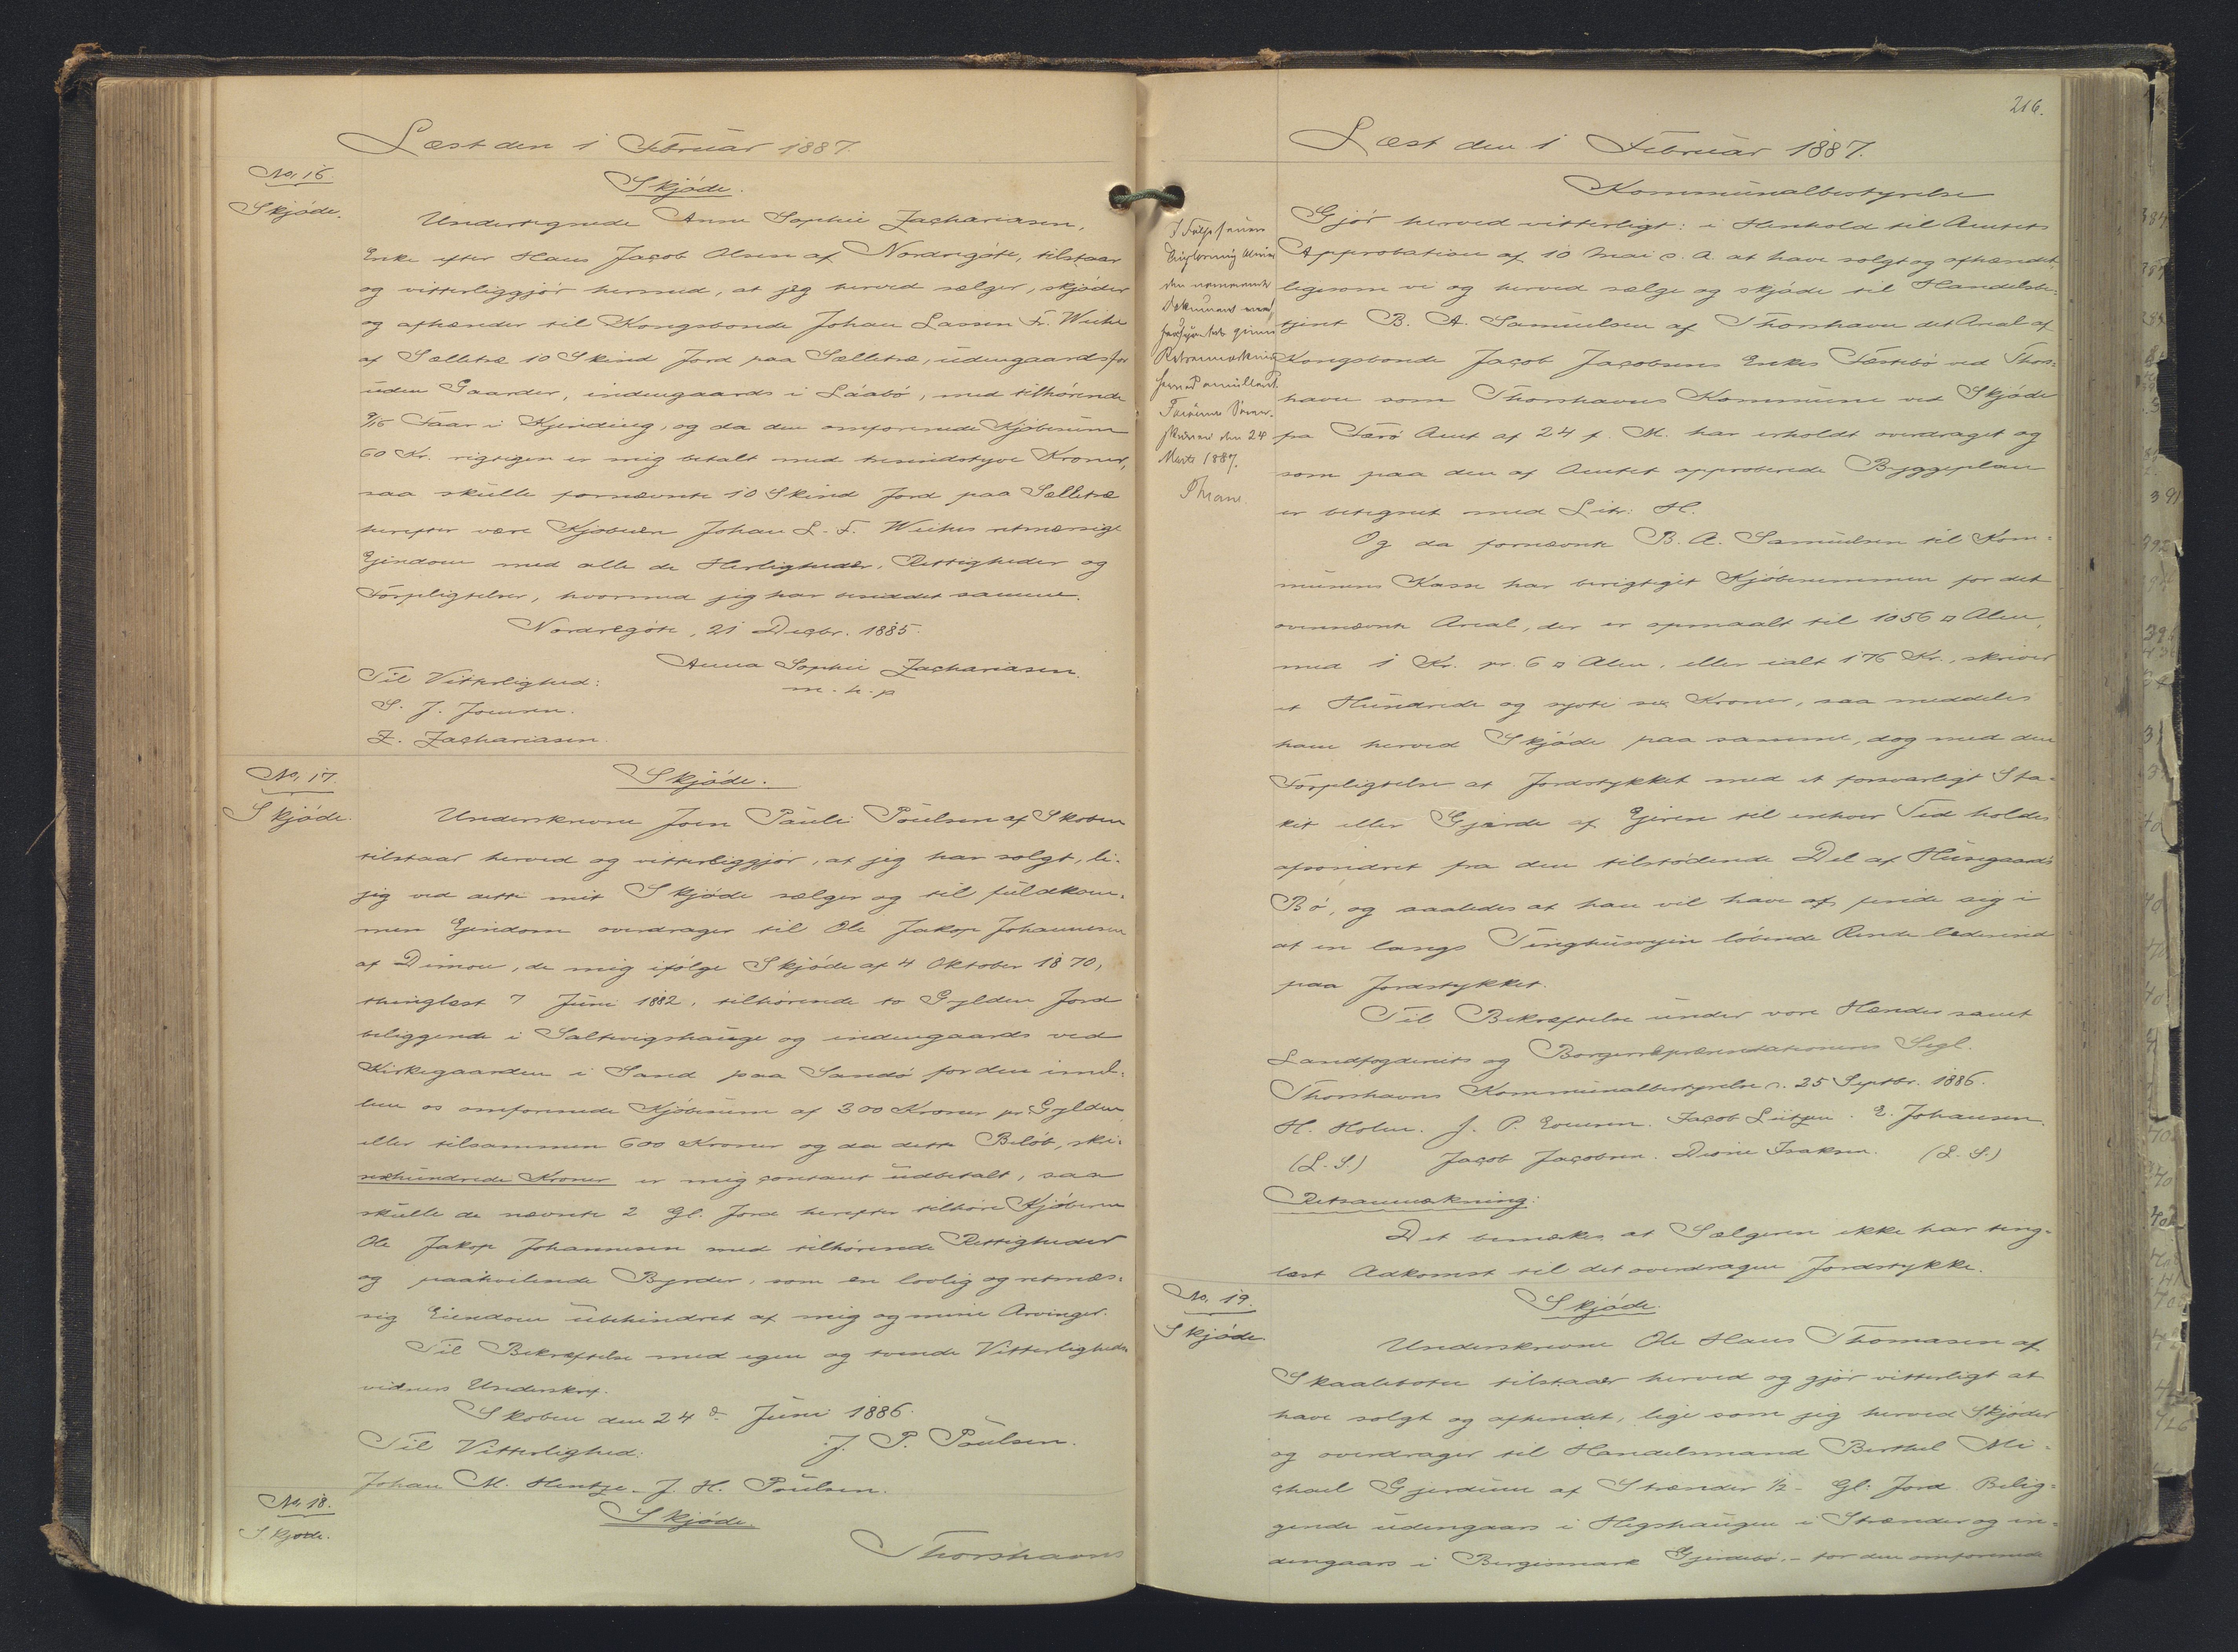 Læst den 1 Februar 1887.
No. 16.
Skjöde.
Skjöde.
Undertegnede Anna Sophie Zachariasen,
Enke efter Hans Jacob Olsen af Nordregöte, tilstaar
og vitterliggjör hermed, at jeg herved sælger, skjöder
og afhænder til Kongsbonde Johan Lassen Fr. Weihe
af Sælletræ 10 Skind Jord paa Sælletræ, udengaards for
uden Gaarder, indengaards i Láabö, med tilhörende
9/16 Faar i Kjending, og da den omforenede Kjöbesum
60 Kr. rigtigen er mig betalt med tresindstyve Kroner,
saa skulle fornævnte 10 Skind Jord paa Sælletræ
herefter være Kjöberen Johan L. F. Weihes retmæssige
Ejendom med alle de Herligheder, Rettigheder og
Forpligtelser, hvormed jeg har besiddet samme.
Nordregöte, 21 Decbr. 1885.
Anna Sophie Zachariasen.
m. h. p
Til Vitterlighed:
S. J. Joensen.
Z. Zachariasen
No. 17.
Skjöde.
Skjöde.
Underskrevne Joen Pauli Poulsen af Skoben
tilstaar herved og vitterliggjör, at jeg har solgt, li-
jeg ved dette mit Skjöde sælger og til fuldkom-
men Ejendom overdrager til Ole Jakop Johannesen
af Dimon, de mig ifölge Skjöde af 4 Oktober 1870,
thinglæst 7 Juni 1882, tilhörende to Gylden Jord
beliggende i Saltvigshauge og indengaards ved
Kirkegaarden i Sand paa Sandö for den imel-
lem os omforenede Kjöbesum af 300 Kroner pr Gylden
eller tilsammen 600 Kroner og da dette Belöb, skri-
sexhundrede Kroner er mig contant udbetalt, saa
skulle de nævnte 2 Gl. Jord herefter tilhöre Kjöberen
Ole Jakop Johannesen med tilhörende Rettigheder
og paahvilende Byrder, som en lovlig og retmæs-
sig Eiendom ubehindret af mig og mine Arvinger.
Til Bekræftelse med egen og tvende Vitterligheds
vidners Underskrif.
Skoben den 24 d. Juni 1886.
J. P. Poulsen.
Til Vitterlighed:
Johan M. Hentze. J. H. Poulsen.
No. 18.
Skjöde.
Skjöde.
Thorshavns
216.
Læst den 1 Februar 1887.
Kommunalbestyrelse
Gjör herved vitterligt: i Henhold til Amtets
Approbation af 10 Mai d. A. at have solgt og afhændet,
ligesom vi og herved sælge og skjöde til Handelsbe-
tjent B. A. Samuelsen af Thorshavn det Areal af
Kongsbonde Jacob Jacobsens Enkes Fæstebö ved Thors-
havn som Thorshavns Kommune ved Skjöde
fra Færö Amt af 24 f. M. har erholdt overdraget og
som paa den af Amtet approberede Byggeplan
er betegnet med Litr: H.
Og da fornævnte B. A. Samuelsen til Kom-
munens Kasse har berigtiget Kjöbesummen for det
ovennævnte Areal, der er opmaalt til 1056 □ Alen,
med 1 Kr. pr. 6 □ Alen, eller ialt 176 Kr., skriver
et Hundrede og syvti sex Kroner, saa meddeles
ham herved Skjöde paa samme, dog med den
Forpligtelse at Jordstykket med et forsvarligt Sta-
ket eller Gjærde af Ejeren til enhver Tid holdes
afsondret fra den tilstödende Del af Husegaards
Bö, og saaledes at han vil have at finde sig i
at en langs Tinghusvejen löbende Rende ledes ind
paa Jordstykket.
Til Bekræftelse under vore Hænder samt
Landfogderiets og Borgerrepræsentationens Segl.
Thorshavns Kommunalbestyrelse d. 25 Septbr. 1886.
H. Holm. J. P. Ennesen. Jacob Lützen. E. Johansen.
(L. S.) Jacob Jacobsen. Dione Isaksen. (L. S.)
Retsanmækning:
Det bemækes at Sælgeren ikke har ting-
læst Adkomst til det overdragne Jordstykke.
den 24
Marts 1887.
No. 19.
Skjöde
Skjöde.
Underskrevne Ole Hans Thomasen af
Skaalebotn tilstaaer herved og gjör vitterligt at
have solgt og afhendet, lige som jeg herved Skjöder
og overdrager til Handelsmand Berthel Mi-
chael Gjerdum af Strænder 1/2 Gl. Jord Belig-
gende udengaars i Hegshaugen i Strænder og in-
dengaars i Bergismark Gjerdebö. - for den omforenede